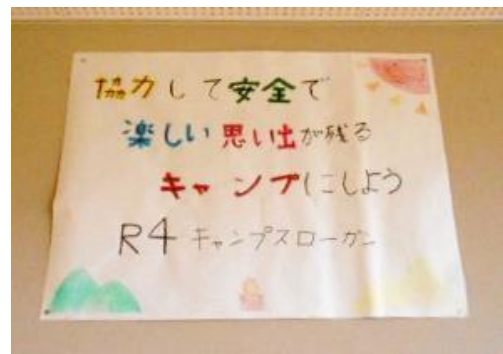 協力して安全で
楽しい思い出が残る
キャンプにしよう
R4 キャンプスローガン